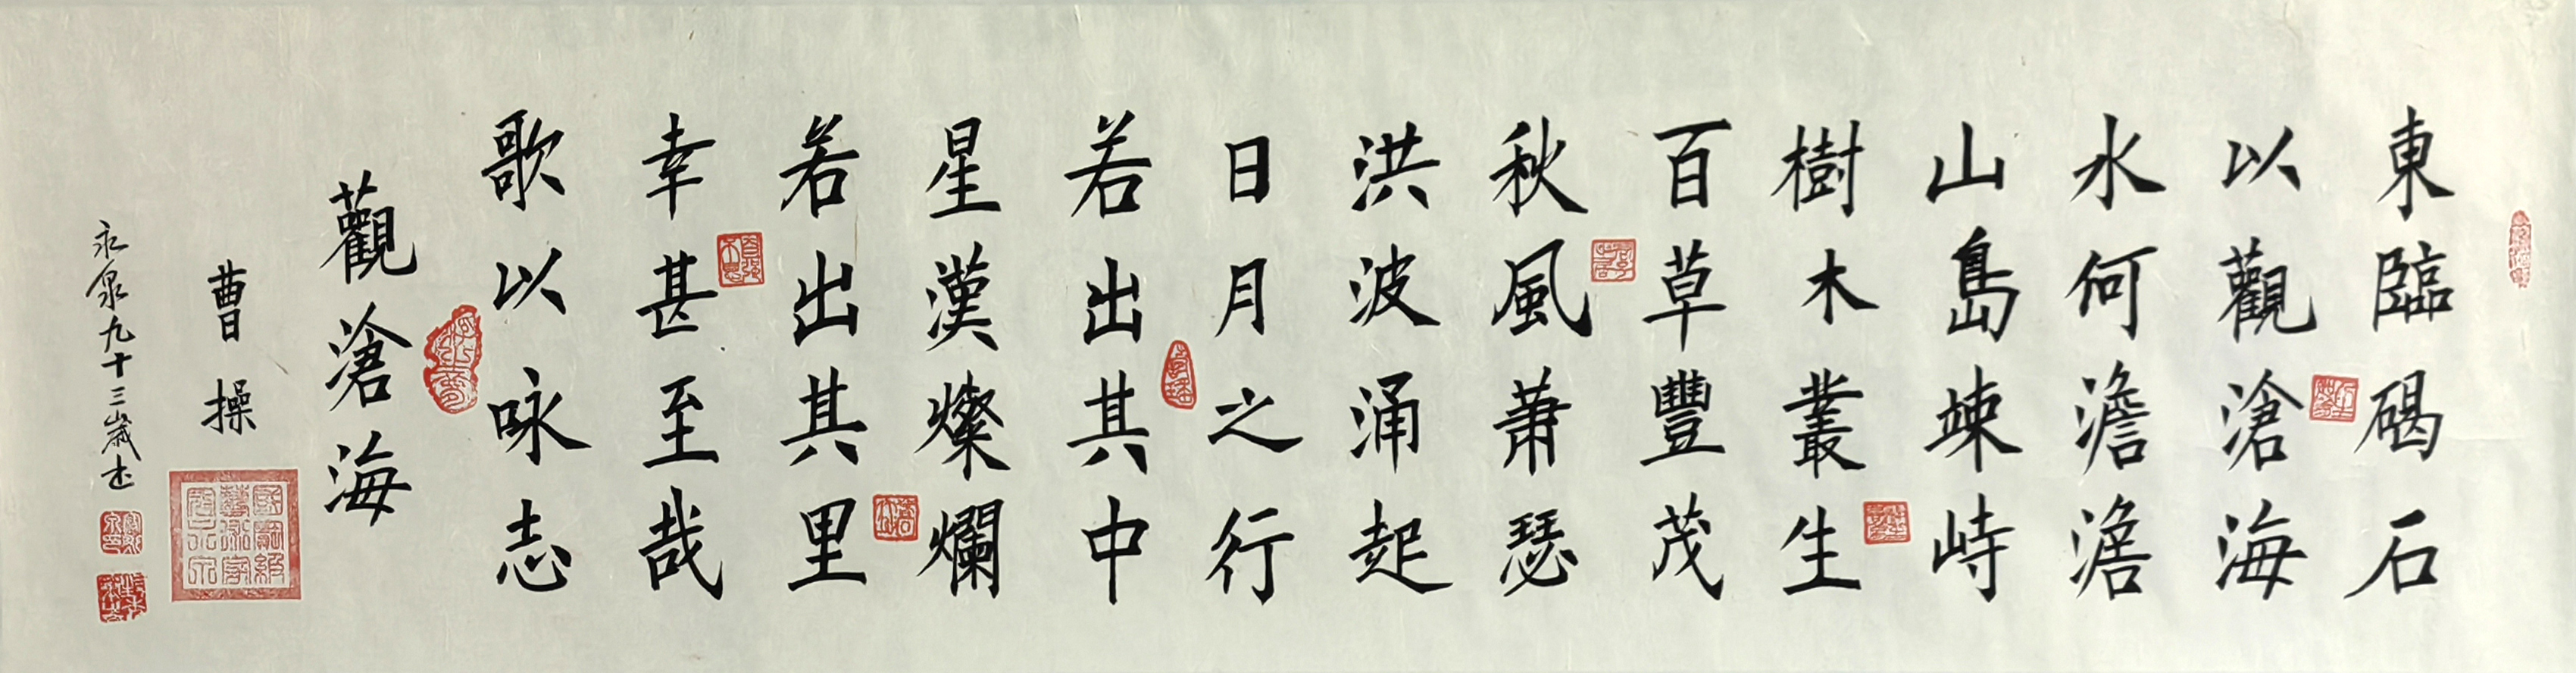 東臨碣石
以觀滄海
水何澹澹
山島竦峙
樹木叢生
百草豐茂
秋風萧瑟
洪波涌起
日月之行
若出其中
星漢燦爛
若出其里
幸甚至哉
歌以咏志
觀滄海
曹操
永泉九十三歲书
國寶級
藝術家